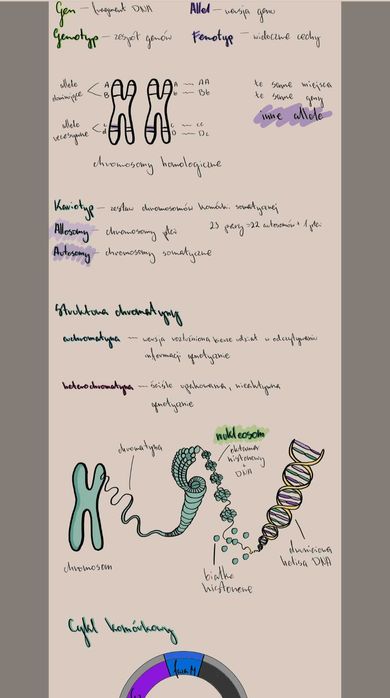 Gen – fragment DNA
Allel – wersja genu
Genotyp – zespół genów
Fenotyp – widoczne cechy
allele dominujące
A
B
A
b
AA
Bb
te same miejsca
te same geny
inne allele
allele recesywne
c
d
c
D
cc
Dd
chromosomy homologiczne
Kariotyp – zestaw chromosomów komórki somatycznej
Allosomy – chromosomy płci
23 pary → 22 autosomów + 1 płci
Autosomy – chromosomy somatyczne
Struktura chromatyny
euchromatyna – wersja rozluźniona bierze udział w odczytywaniu
informacji genetycznie
heterochromatyna – ściśle upakowana, nieaktywna
genetycznie
nukleosom
chromatyna
oktamer
histonowy
+
DNA
chromosom
białka
histonowe
dwuniciowa
helisa DNA
Cykl komórkowy
faza M